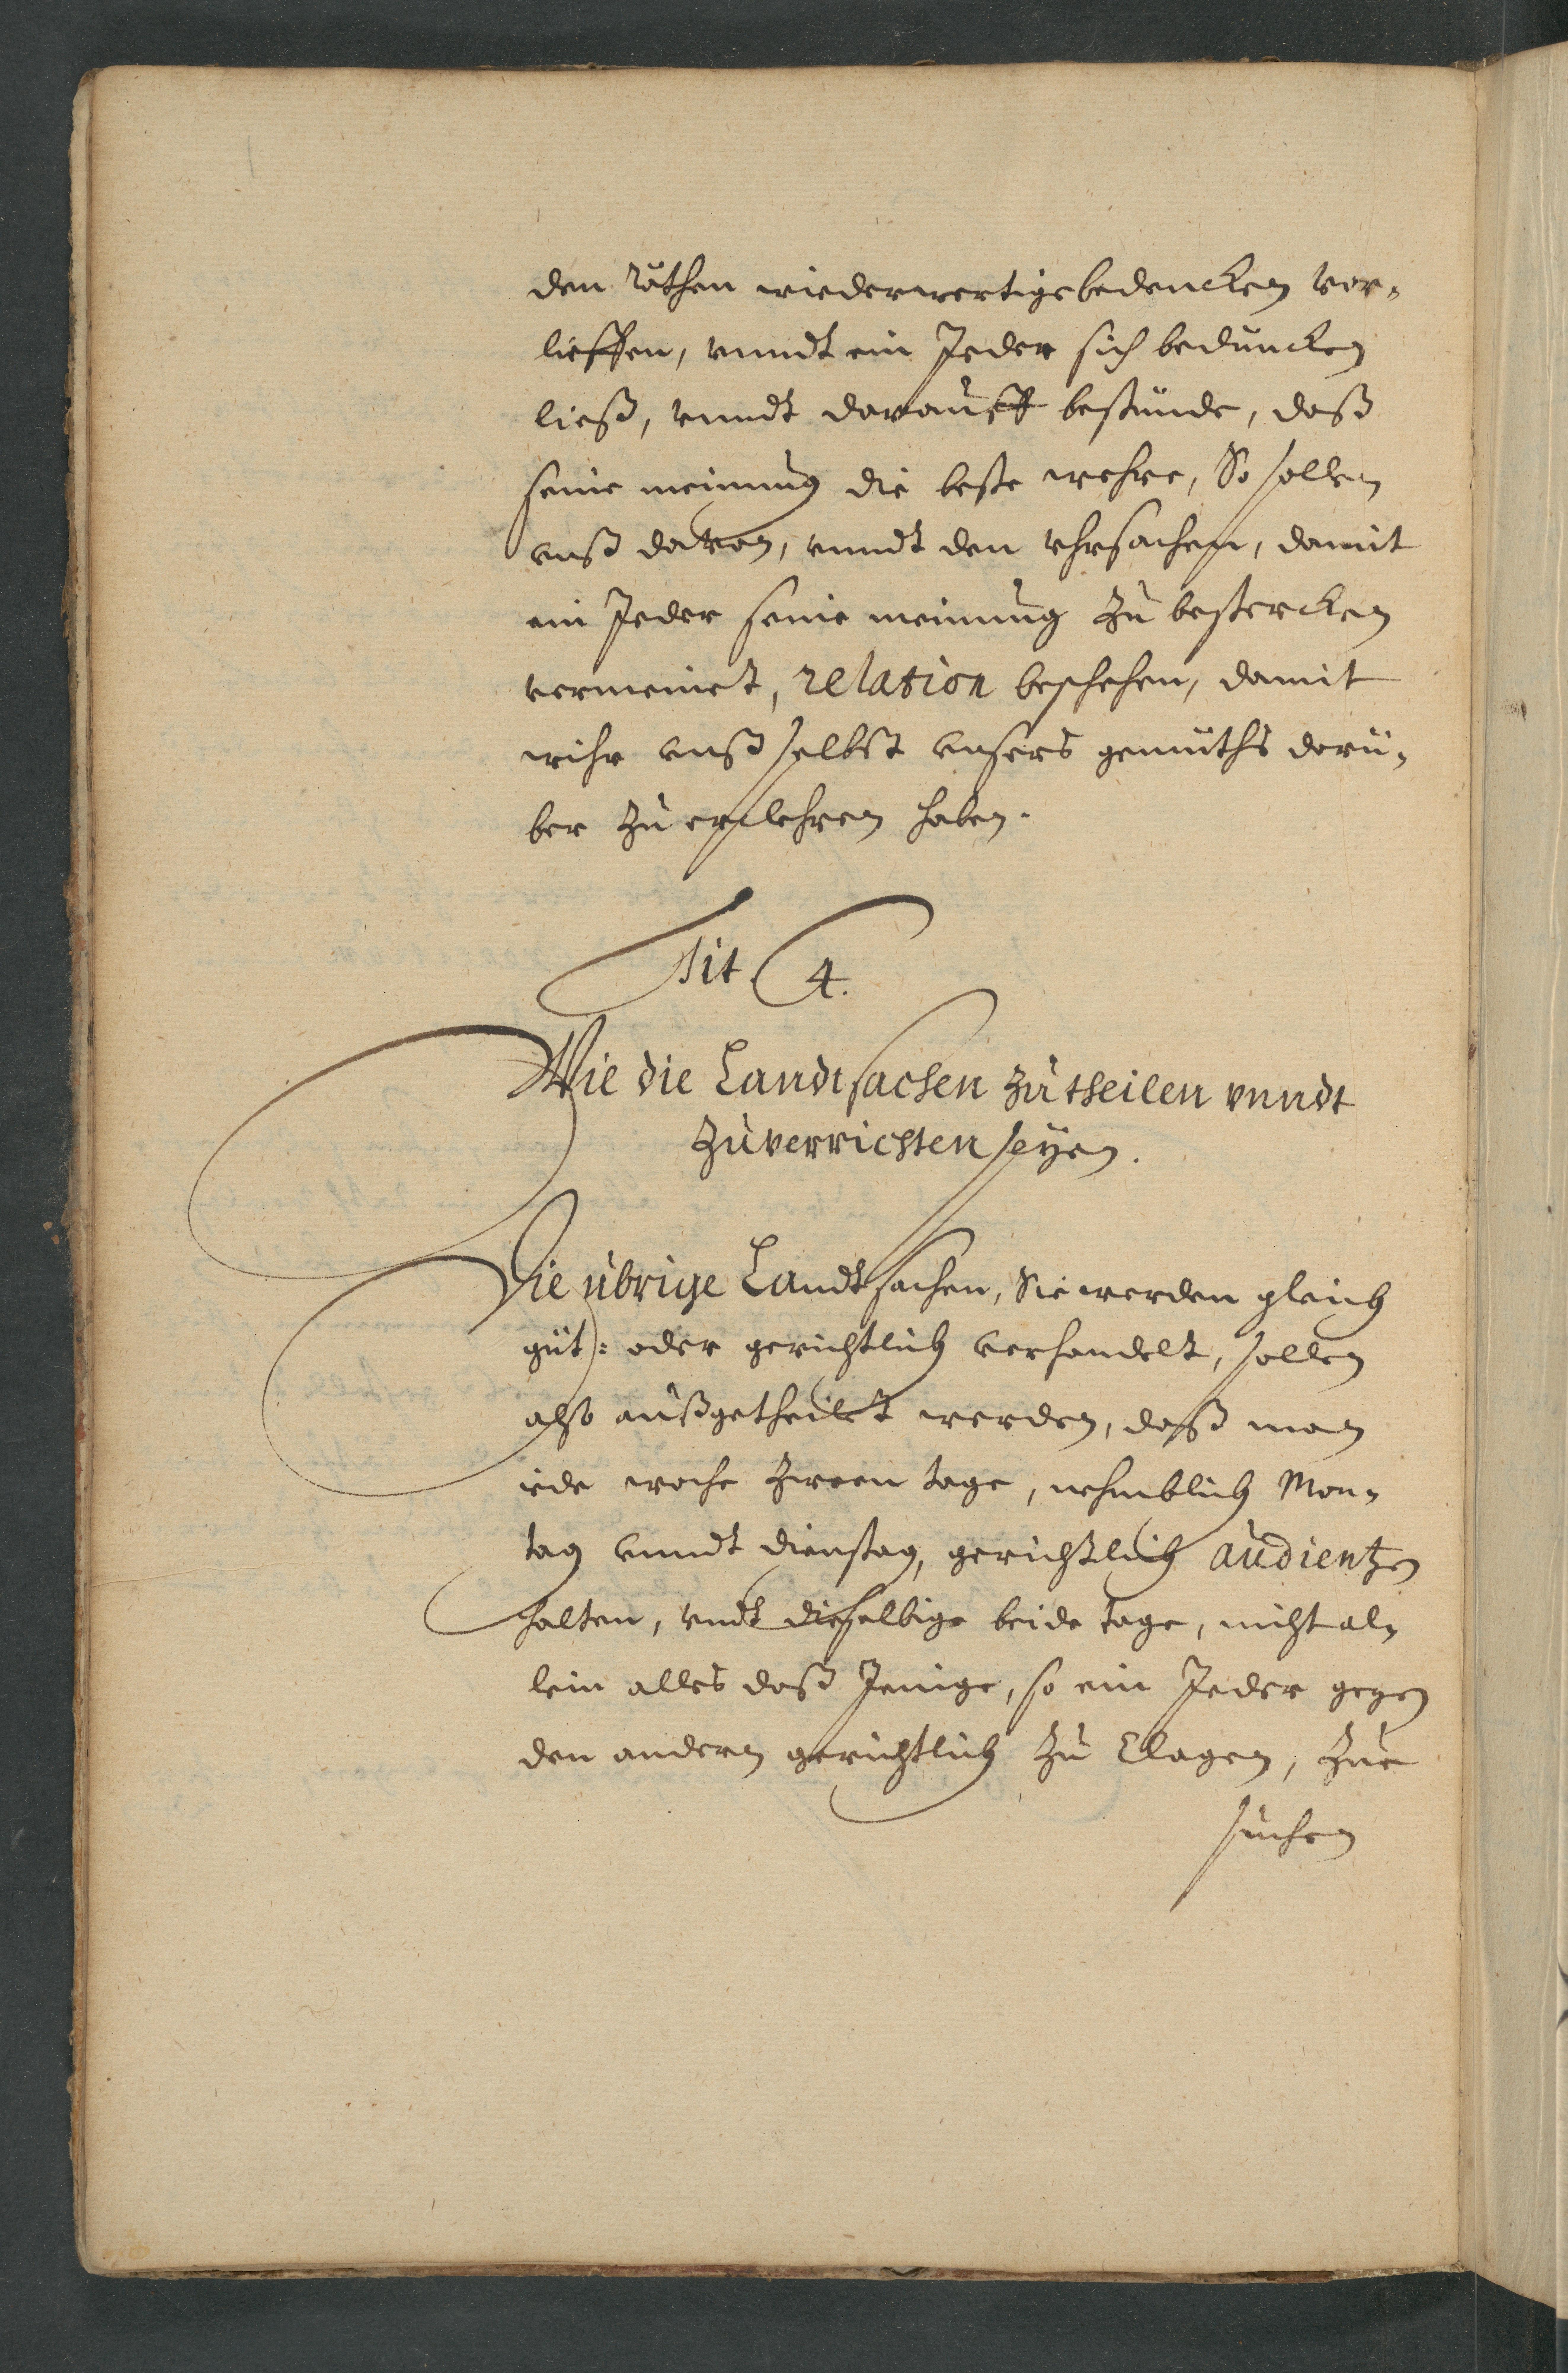 den Räthen wiederwertige bedencken vor-
lieffen, vnndt ein Jeder sich beduncken
ließ, vnndt darauff bestünde, daß
seine meinung die beste wehre, So sollen
vnß davon, vnndt den vhrsachen, damit
ein Jeder seine meinung zu bestercken
vermeinet, relation beschehen, damit
wihr vnß selbst vnsers gemüths darü-
ber zu erclehren haben.
Tit. 4.
Wie die Landtsachen zu theilen vnndt
zuverrichten seÿen.
Die übrige Landtsachen, Sie werden gleich
güt: oder gerichtlich verhandelt, sollen
also außgetheilet werden, daß man
iede woche zween tage, nehmblich Mon-
tag vnndt dienstag, gerichtlich audientzen
halten, vndt dieselbige beide tage, nicht al-
lein alles daß Jenige, so ein Jeder gegen
den andern gerichtlich zu Clagen, zue
suchen